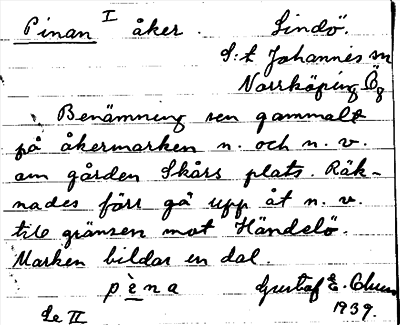 Pinan I åker. Lindö.
S:t Johannis sn
Norrköping Ög
Benämning sen gammalt
på åkermarken n. och n. v.
om gården Skårs plats. Räk-
nades förr gå upp åt n. v.
till gränsen mot Händelö.
Marken bildar en dal.
pèna Gustaf E.
Se II 1939.